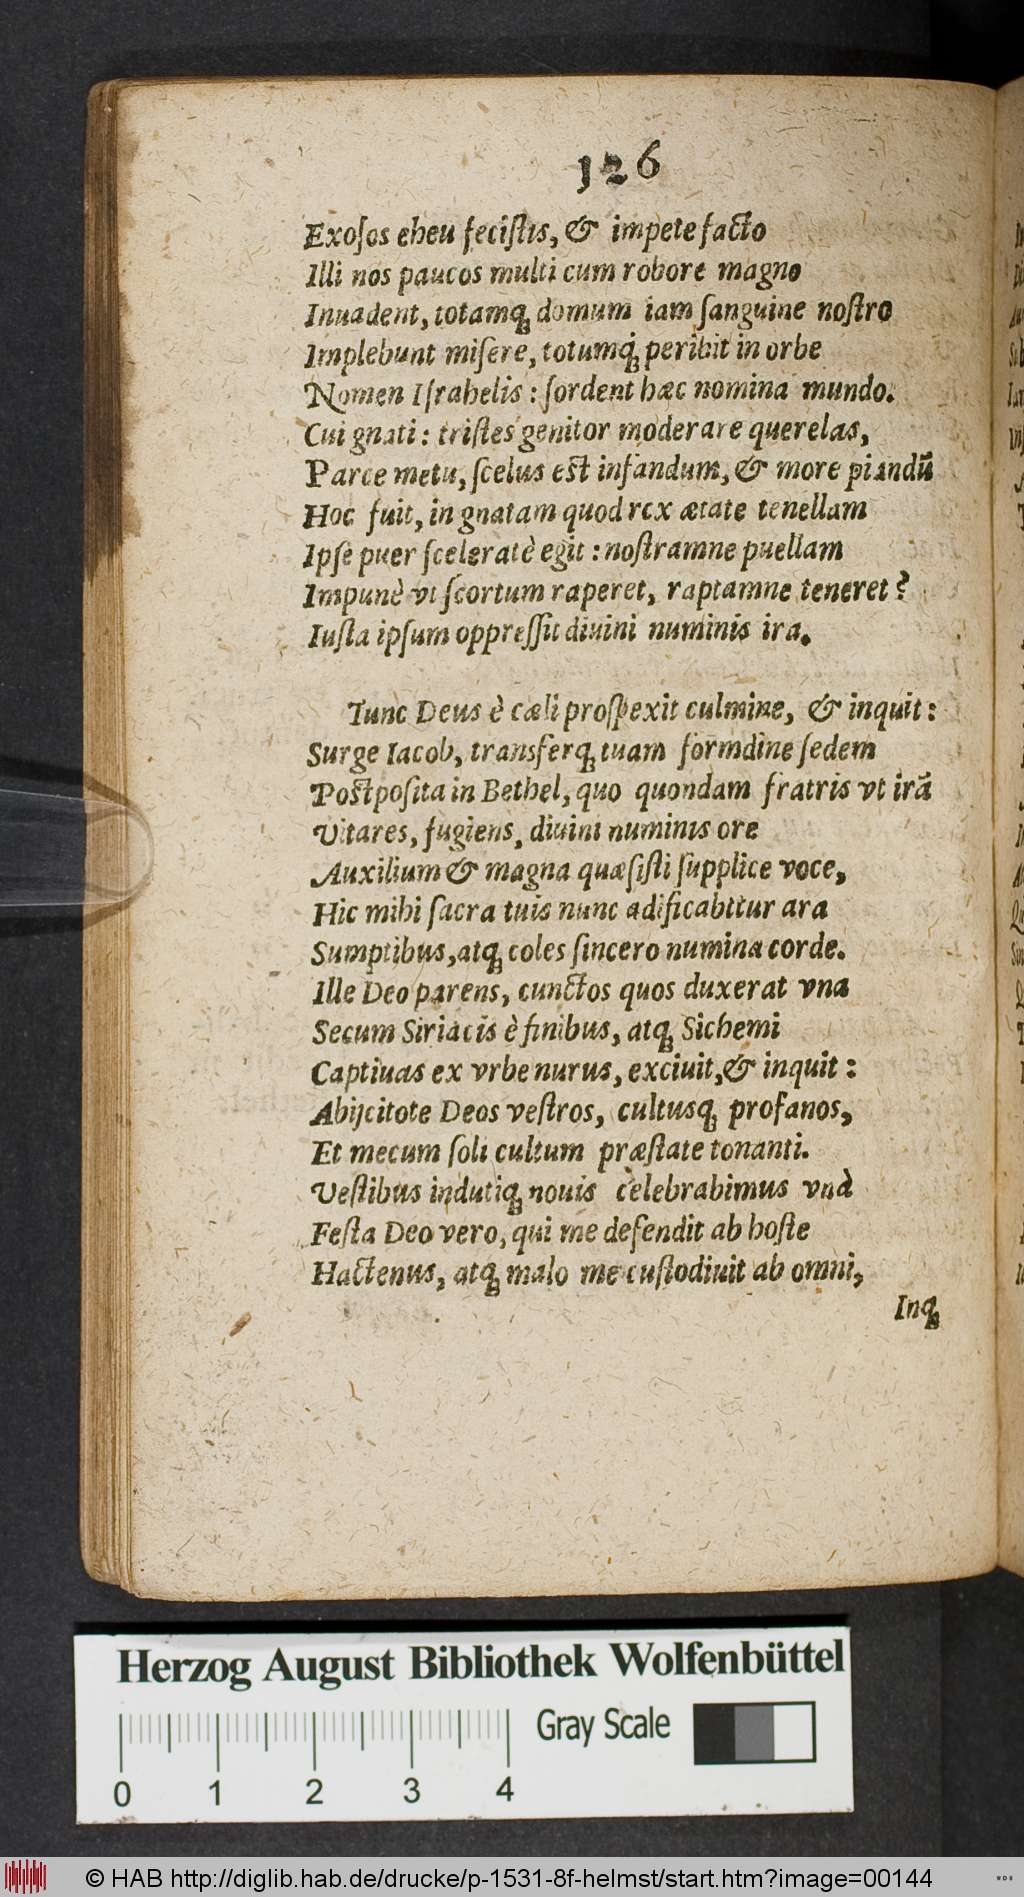 126
Exoſos eheu feciſtis, & impete facto
Illi nos paucos multi cum robore magno
Inuadent, totamq́; domum iam ſanguine noſtro
Implebunt miſere, totumq́; peribit in orbe
Nomen Iſrahelis: ſordent hæc nomina mundo.
Cui gnati: triſtes genitor moderare querelas,
Parce metu, ſcelus est infandum, & more piandū
Hoc fuit, in gnatam quod rex ætate tenellam
Ipſe puer ſceleratè egit: noſtramne puellam
Impunè vt ſcortum raperet, raptamne teneret?
Iuſta ipſum oppreſſit diuini numinis ira.
Tunc Deus è cæli proſpexit culmine, & inquit:
Surge Iacob, transferq; tuam formdine ſedem
Postpoſita in Bethel, quo quondam fratris vt irā
Vitares, fugiens, diuini numinis ore
Auxilium & magna quæſiſti ſupplice voce,
Hic mihi ſacra tuis nunc ædificabitur ara
Sumptibus, atq; coles ſincero numina corde.
Ille Deo parens, cunctos quos duxerat vna
Secum Siriacis è finibus, atq; Sichemi
Captiuas ex vrbe nurus, exciuit, & inquit:
Abijcitote Deos veſtros, cultusq; profanos,
Et mecum ſoli cultum præſtate tonanti.
Veſtibus indutiq; nouis celebrabimus vnà
Feſta Deo vero, qui me defendit ab hoſte
Hactenus, atq; malo me cuſtodiuit ab omni,
Inq;
Herzog August Bibliothek Wolfenbüttel
Gray Scale
0 1 2 3 4
© HAB http://diglib.hab.de/drucke/p-1531-8f-helmst/start.htm?image=00144